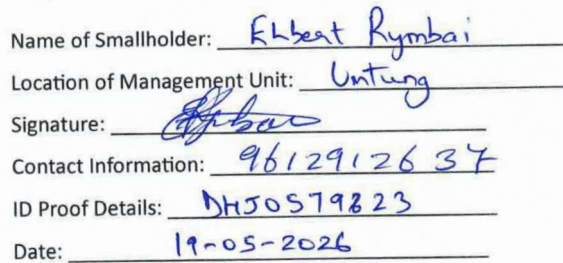 Name of Smallholder: Ehbeat Rymbai
Location of Management Unit: Umtung
Signature:
Contact Information: 9612912637
ID Proof Details: DHJ0579823
Date: 19-05-2026